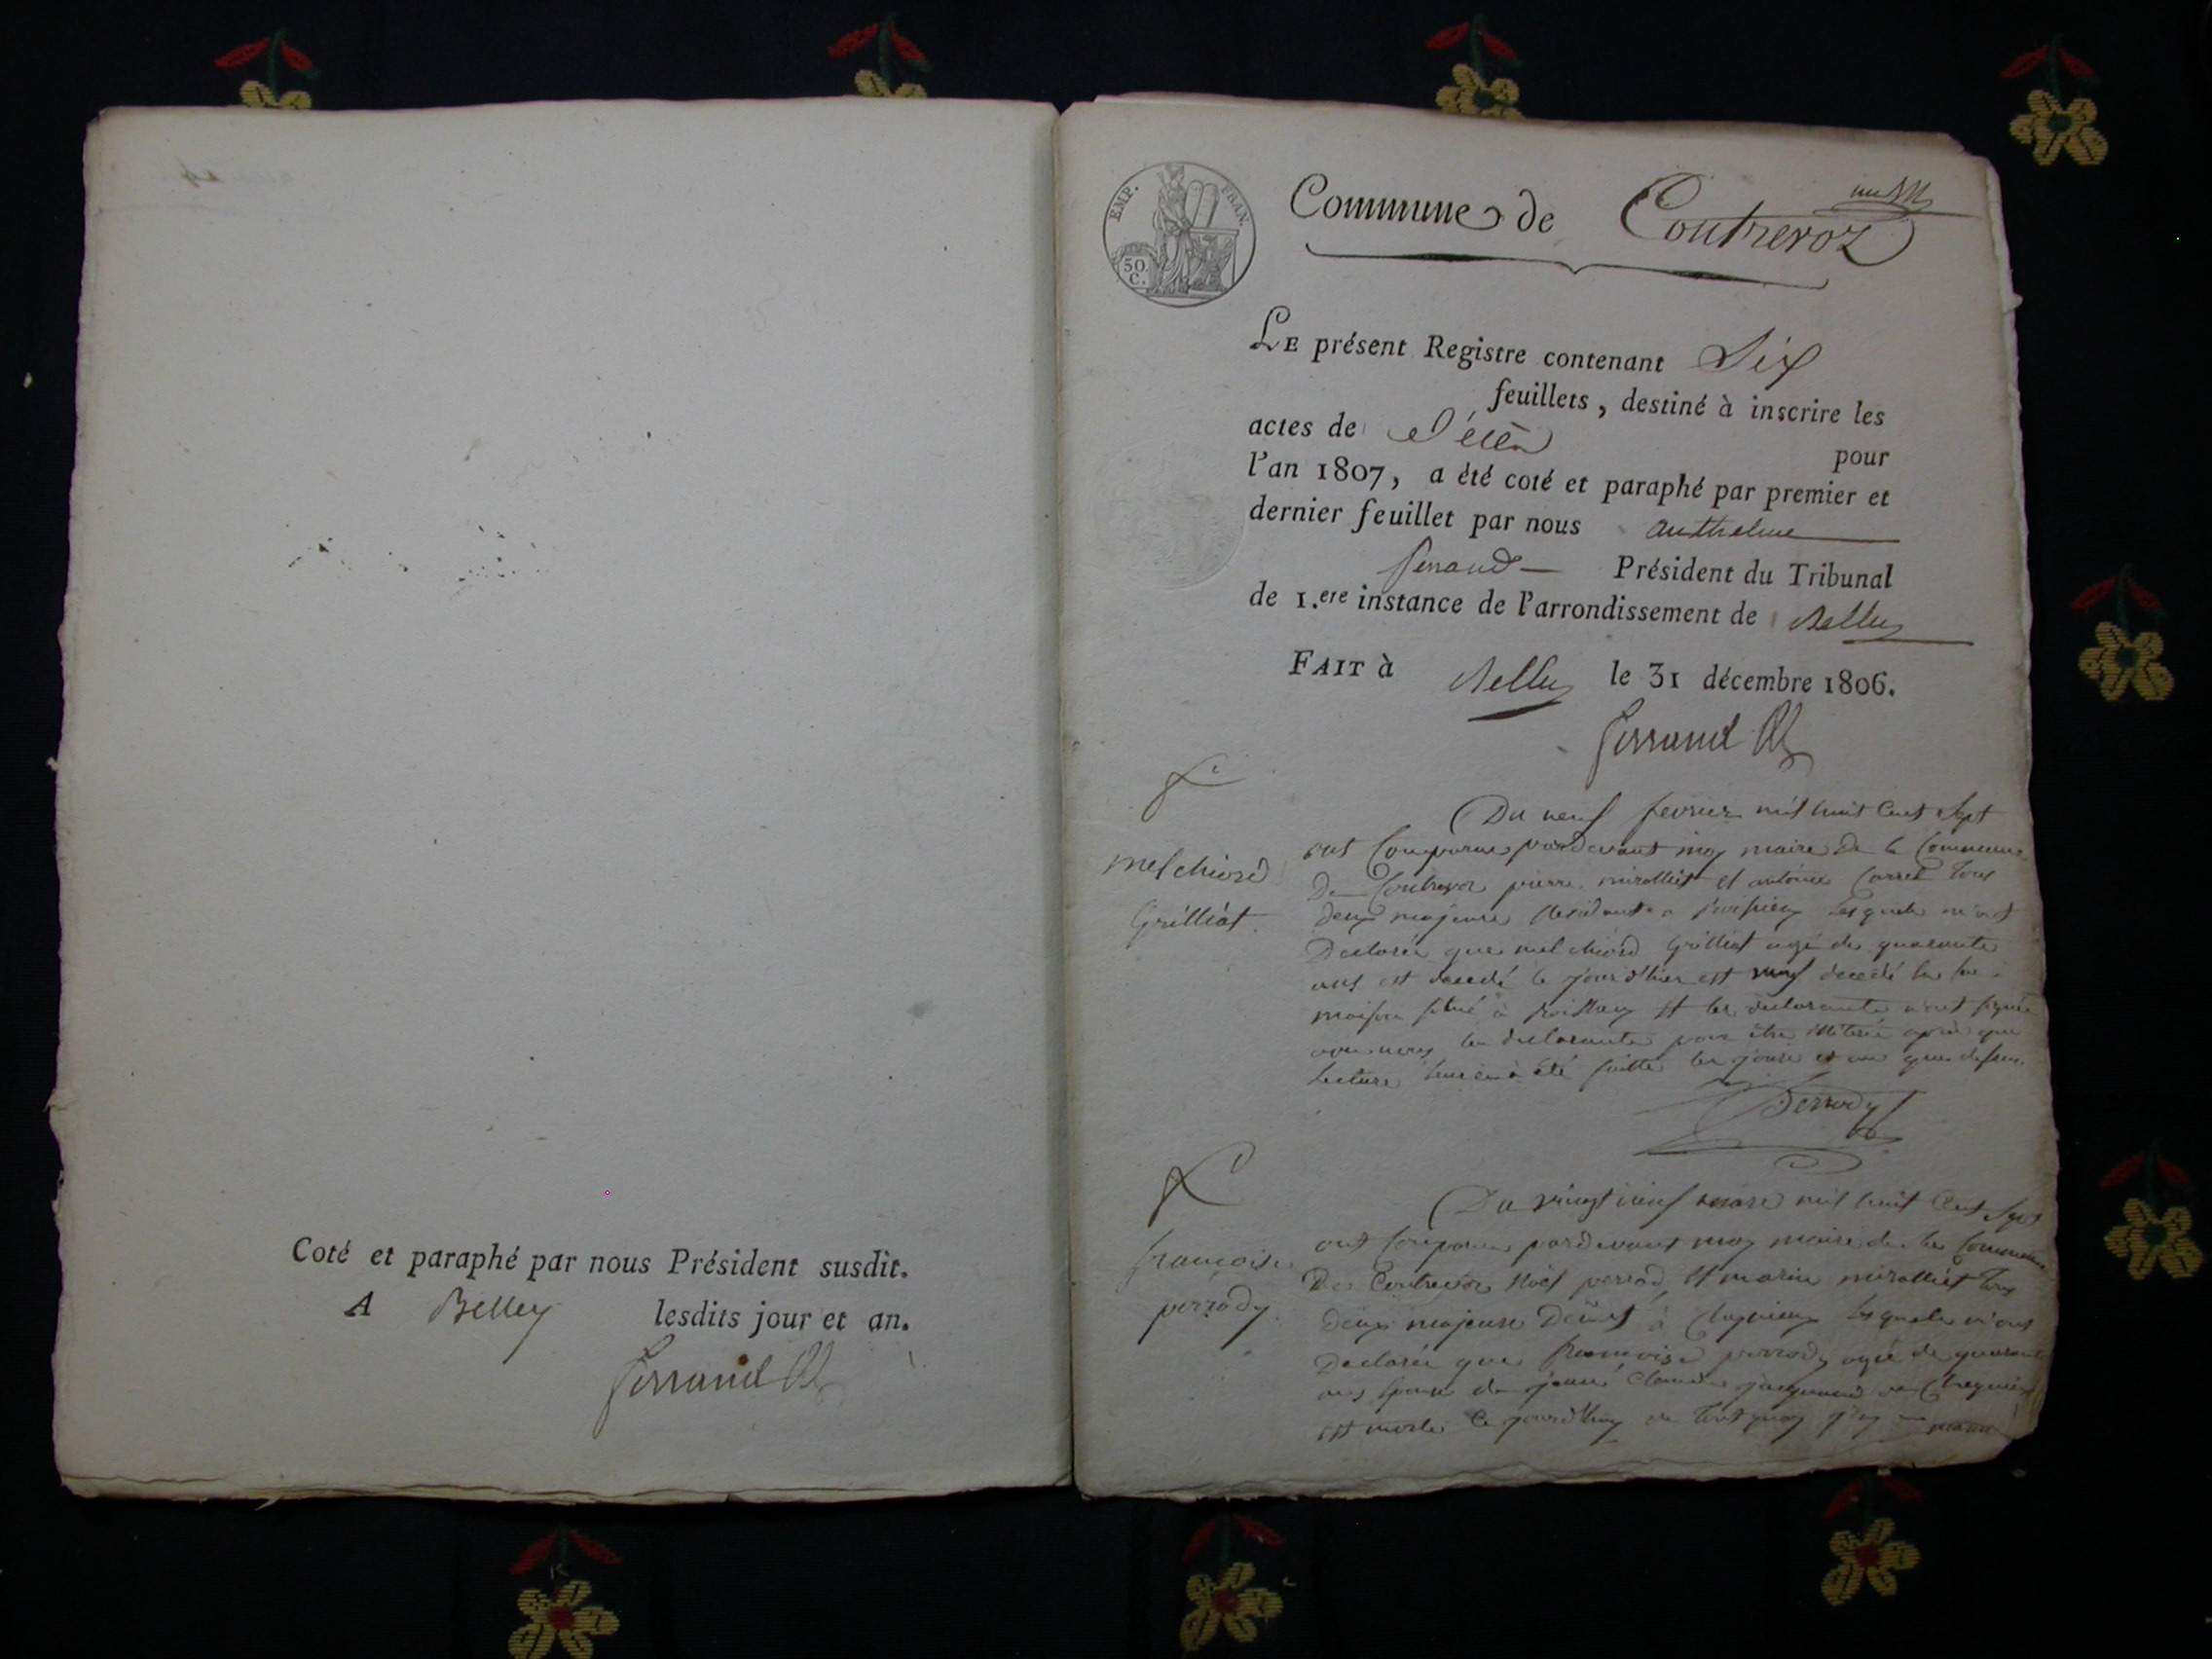 Coté et paraphé par nous Président susdit.
A Belley lesdits jour et an.
Ferrand
EMP. FRAN.
50. C.
Commune de Contrevoz
LE présent Registre contenant Six
feuillets, destiné à inscrire les
actes de Décès pour
l'an 1807, a été coté et paraphé par premier et
dernier feuillet par nous anthelme
ferrand Président du Tribunal
de 1.ere instance de l'arrondissement de Belley
FAIT à Belley le 31 décembre 1806.
Ferrand
melchiord
Grilliat
Du neuf fevrier mil huit Cent Sept
ont Comparus pardevant moy maire de la Commune
De Contrevoz pierre miralliet et antoine Carret Tous
deux majeure Residant a lesquels m'ont
Declarée que melchiord Grilliat agé de quarante
ans est decedé le jourd'hier est decedé
maison situé à et les declarants n'ont signé
les declarants pour être illiteré après que
Lecture leur en à été faitte les jours et an que dessus
Perrody
francoise
perrody
Du vingt neuf mil huit Cent Sept
ont Comparus pardevant moy maire de la Commune
De Contrevoz Noël perrod et marin miralliet Tous
deux majeure à lesquels m'ont
Declarée que francoise perrody agée de quarante
ans Epouse de Claude
est morte ce jourd'huy